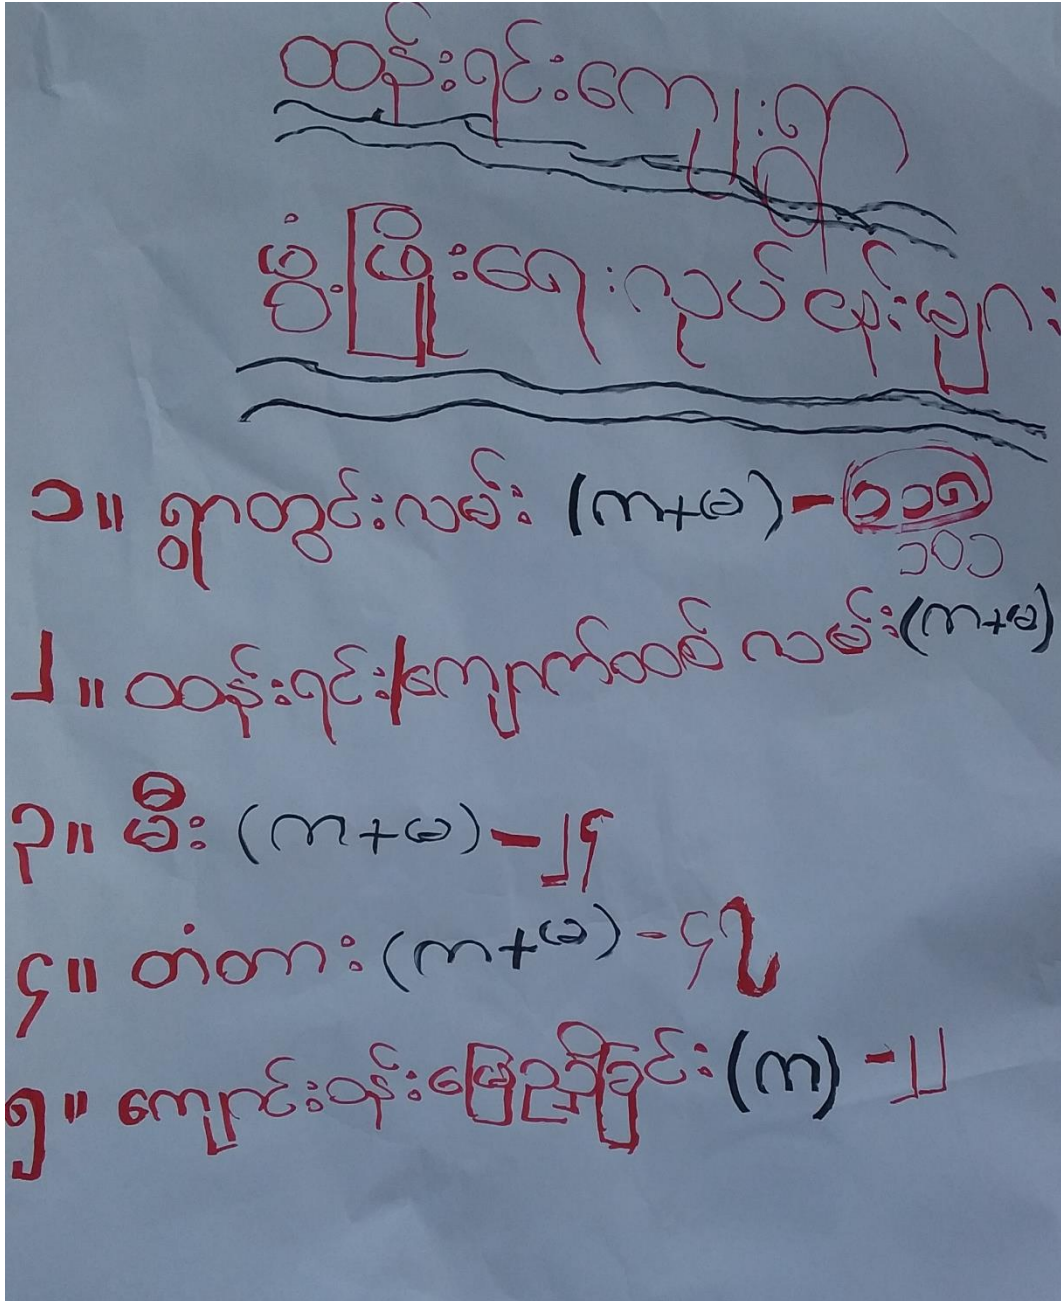 ထန်းရင်းကျေးရွာ
ဖွံ့ဖြိုးရေးလုပ်ငန်းများ
၁။ ရွာတွင်းလမ်း (က+မ) - ၁၁၅
၁၀၁
၂။ ထန်းရင်း/ကျောက်ထစ် လမ်း (က+မ)
၃။ မီး (က+မ) - ၂၄
၄။ တံတား (က+မ) - ၄၃
၅။ ကျောင်းဝန်းမြေညှိခြင်း (က) - ၂၂